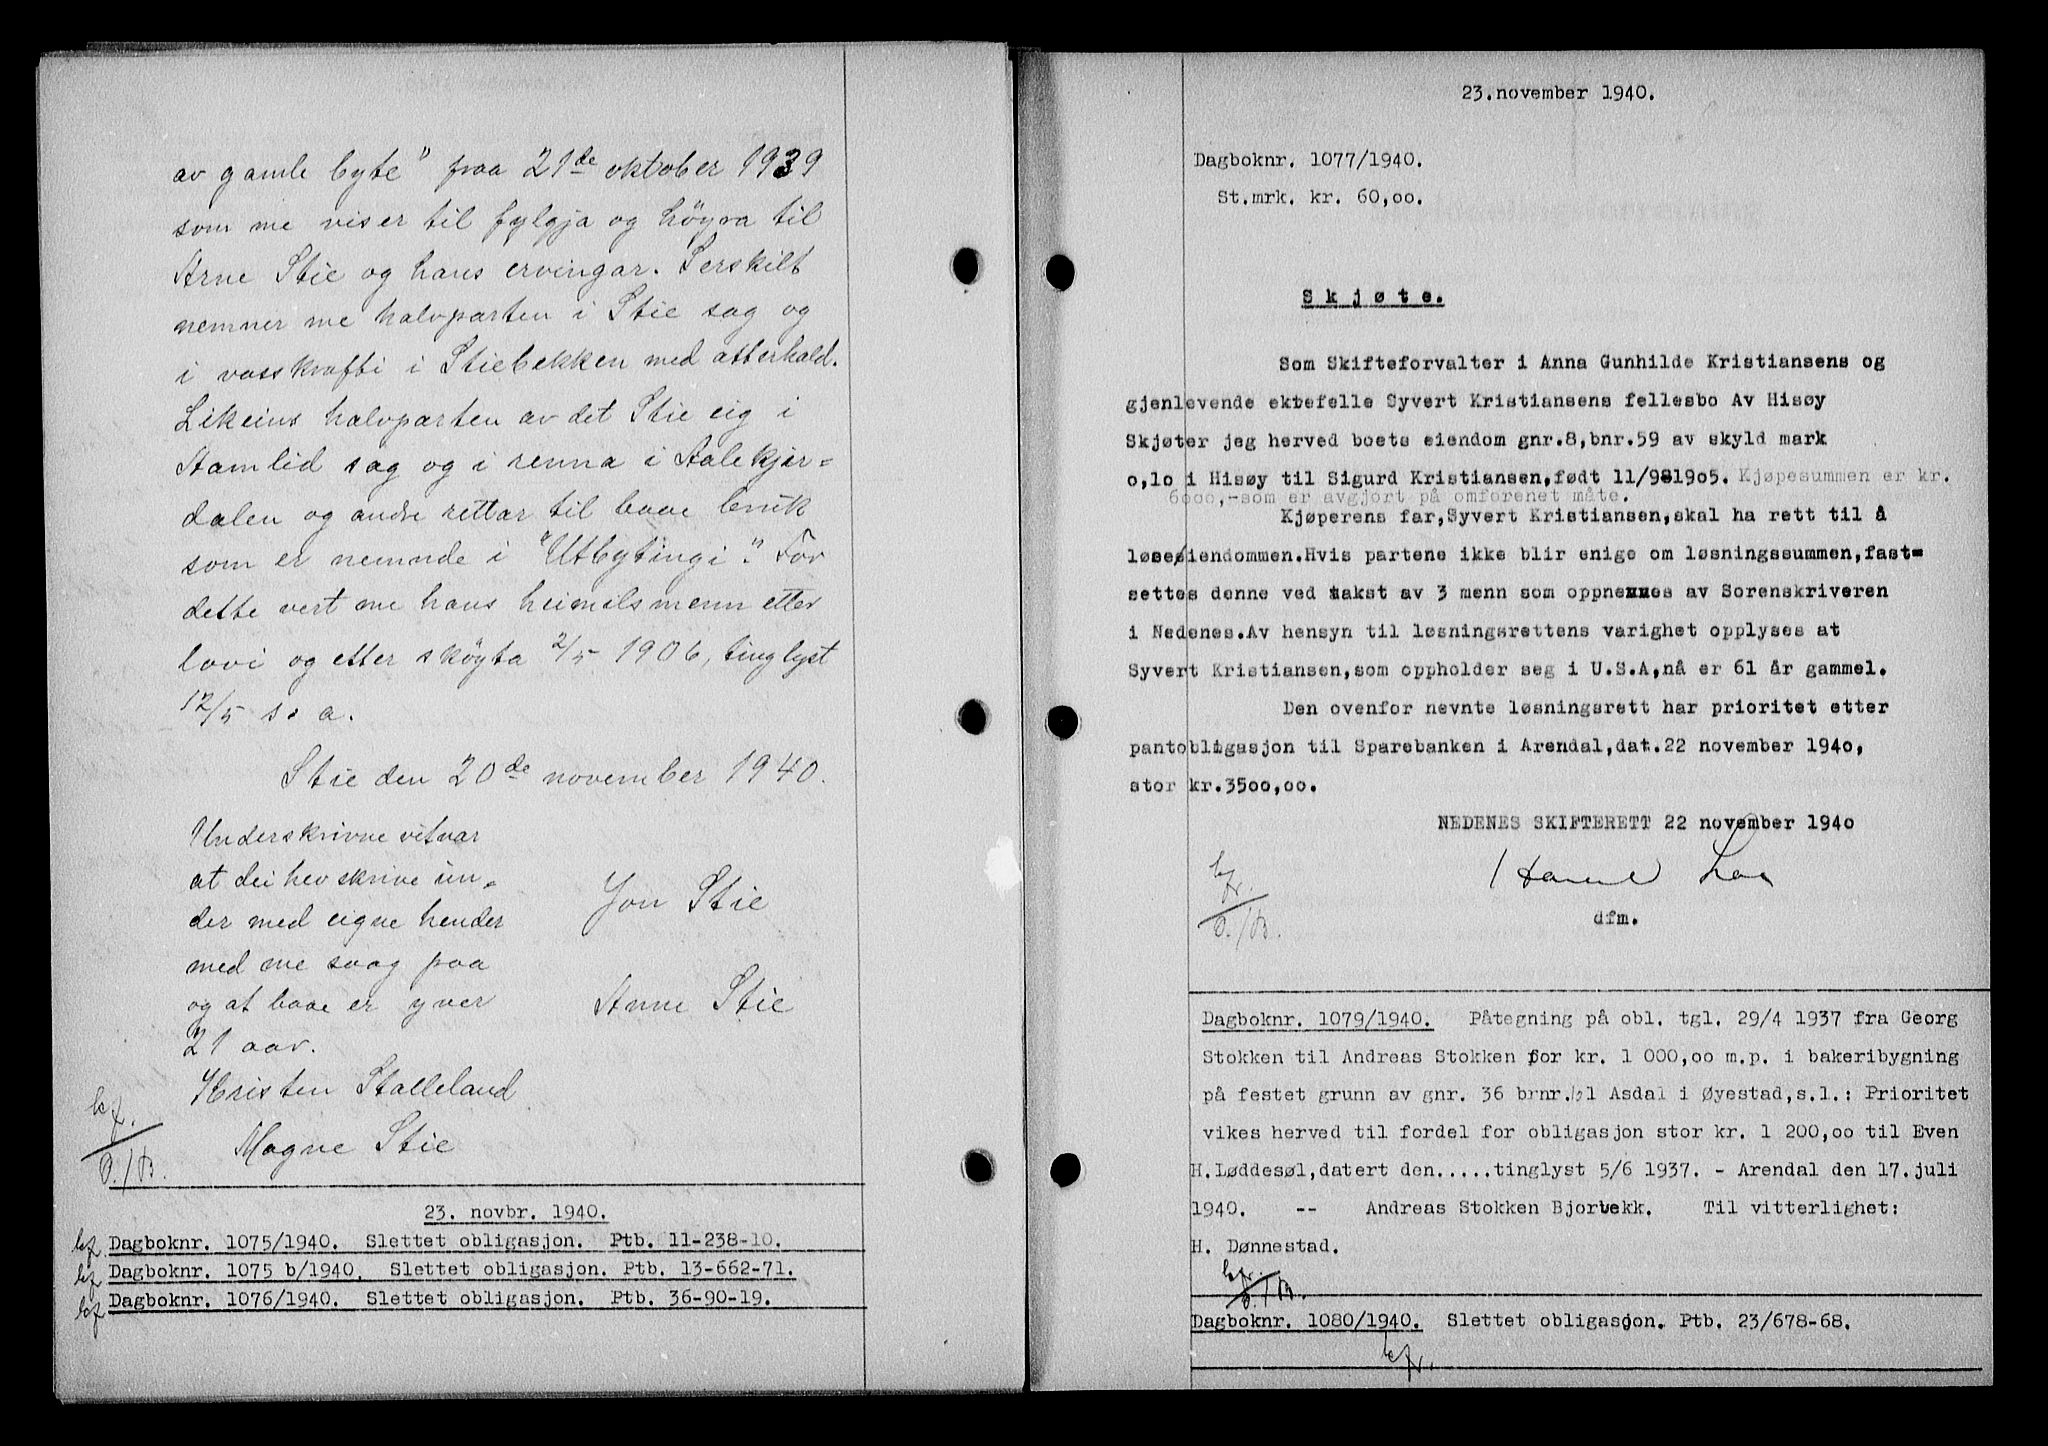 av gamle byte" paa 21de oktober 1939
som me viser til fylgja og höyra til
Arne Stie og hans ervingar. Serskilt
nemner me halvparten i Stie sag og
i vasskrafti i Stiebekken med atterhald.
Likeins halvparten av det Stie eig i
Hamlid sag og i renna i Aalekjer=
dalen og andre rettar til baae bruk
som er nemnde i "Utbytingi". For
dette vert me hans heimilsmenn etter
lovi og etter sköyta 2/5 1906, tinglyst
12/5 s. a.
Stie den 20de november 1940.
Underskrivne vitnar
at dei hev skrive un=
der med eigne hender
med me saag paa
og at baae er yver
21 aar.
Jon Stie
Anne Stie
Kristen Stalleland
Magne Stie
23. novbr. 1940.
Dagboknr. 1075/1940. Slettet obligasjon. Ptb. 11-238-10.
Dagboknr. 1075 b/1940. Slettet obligasjon. Ptb. 13-662-71.
Dagboknr. 1076/1940. Slettet obligasjon. Ptb. 36-90-19.
23.november 1940.
Dagboknr. 1077/1940.
St.mrk. kr. 60,oo.
Skjøte.
Som Skifteforvalter i Anna Gunhilde Kristiansens og
gjenlevende ektefelle Syvert Kristiansens fellesbo Av Hisøy
Skjøter jeg herved boets eiendom gnr.8,bnr.59 av skyld mark
o,lo i Hisøy til Sigurd Kristiansen,født 11/981905. Kjøpesummen er kr.
6ooo,-som er avgjort på omforenet måte.
Kjøperens far,Syvert Kristiansen,skal ha rett til å
løse eiendommen.Hvis partene ikke blir enige om løsningssummen,fast=
settes denne ved takst av 3 menn som oppnevnes av Sorenskriveren
i Nedenes.Av hensyn til løsningsrettens varighet opplyses at
Syvert Kristiansen,som oppholder seg i U.S.A,nå er 61 år gammel.
Den ovenfor nevnte løsningsrett har prioritet etter
pantobligasjon til Sparebanken i Arendal,dat.22 november 1940,
stor kr.3500,oo.
NEDENES SKIFTERETT 22 november 1940
dfm.
Dagboknr. 1079/1940. Påtegning på obl. tgl. 29/4 1937 fra Georg
Stokken til Andreas Stokken for kr. 1 000,oo m.p. i bakeribygning
på festet grunn av gnr. 36 brnr. 1 Asdal i Øyestad,s.l.: Prioritet
vikes herved til fordel for obligasjon stor kr. 1 200,oo til Even
H.Løddesøl,datert den.....tinglyst 5/6 1937. - Arendal den 17.juli
1940. -- Andreas Stokken Bjorbekk. Til vitterlighet:
H. Dønnestad.
Dagboknr. 1080/1940. Slettet obligasjon. Ptb. 23/678-68.